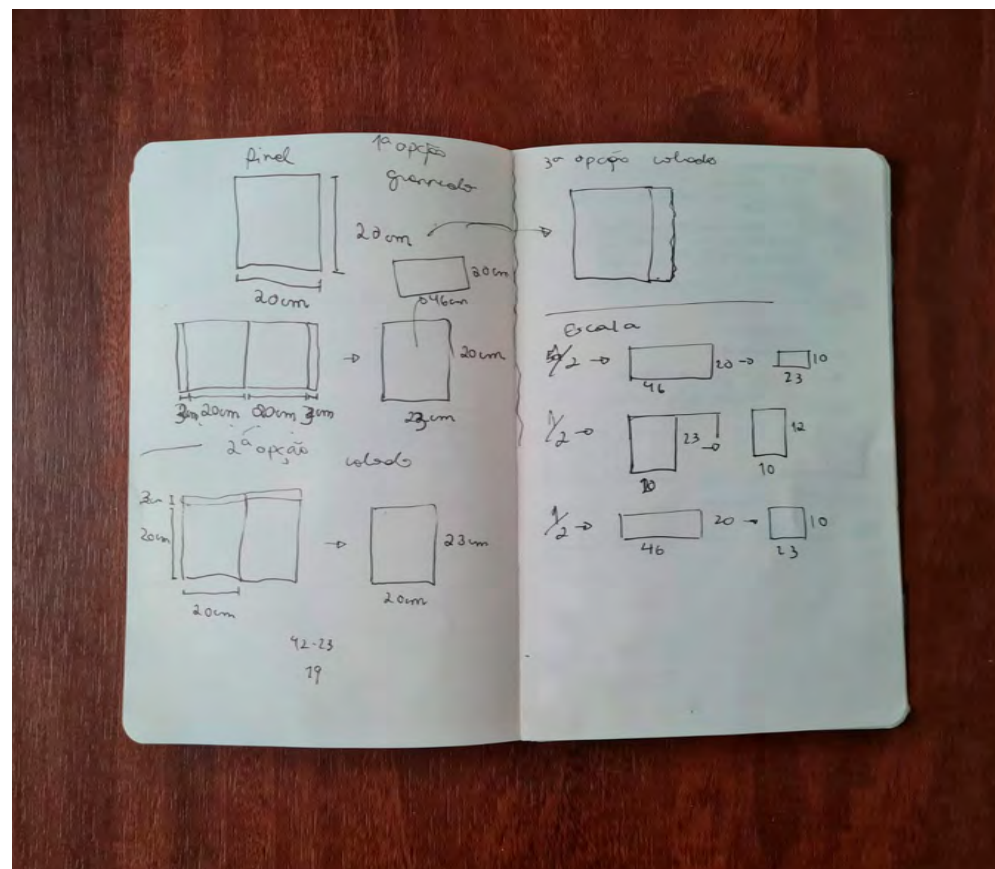 1ª opção
20cm
20cm
20cm
46cm
3cm 20cm 20cm 3cm
20cm
23cm
2ª opção colado
3cm
20cm
20cm
23cm
20cm
42-23
19
3ª opção colado
Escala
1/2 → 46 20 → 23 10
1/2 → 23 → 12
10
1/2 → 46 20 → 23 10